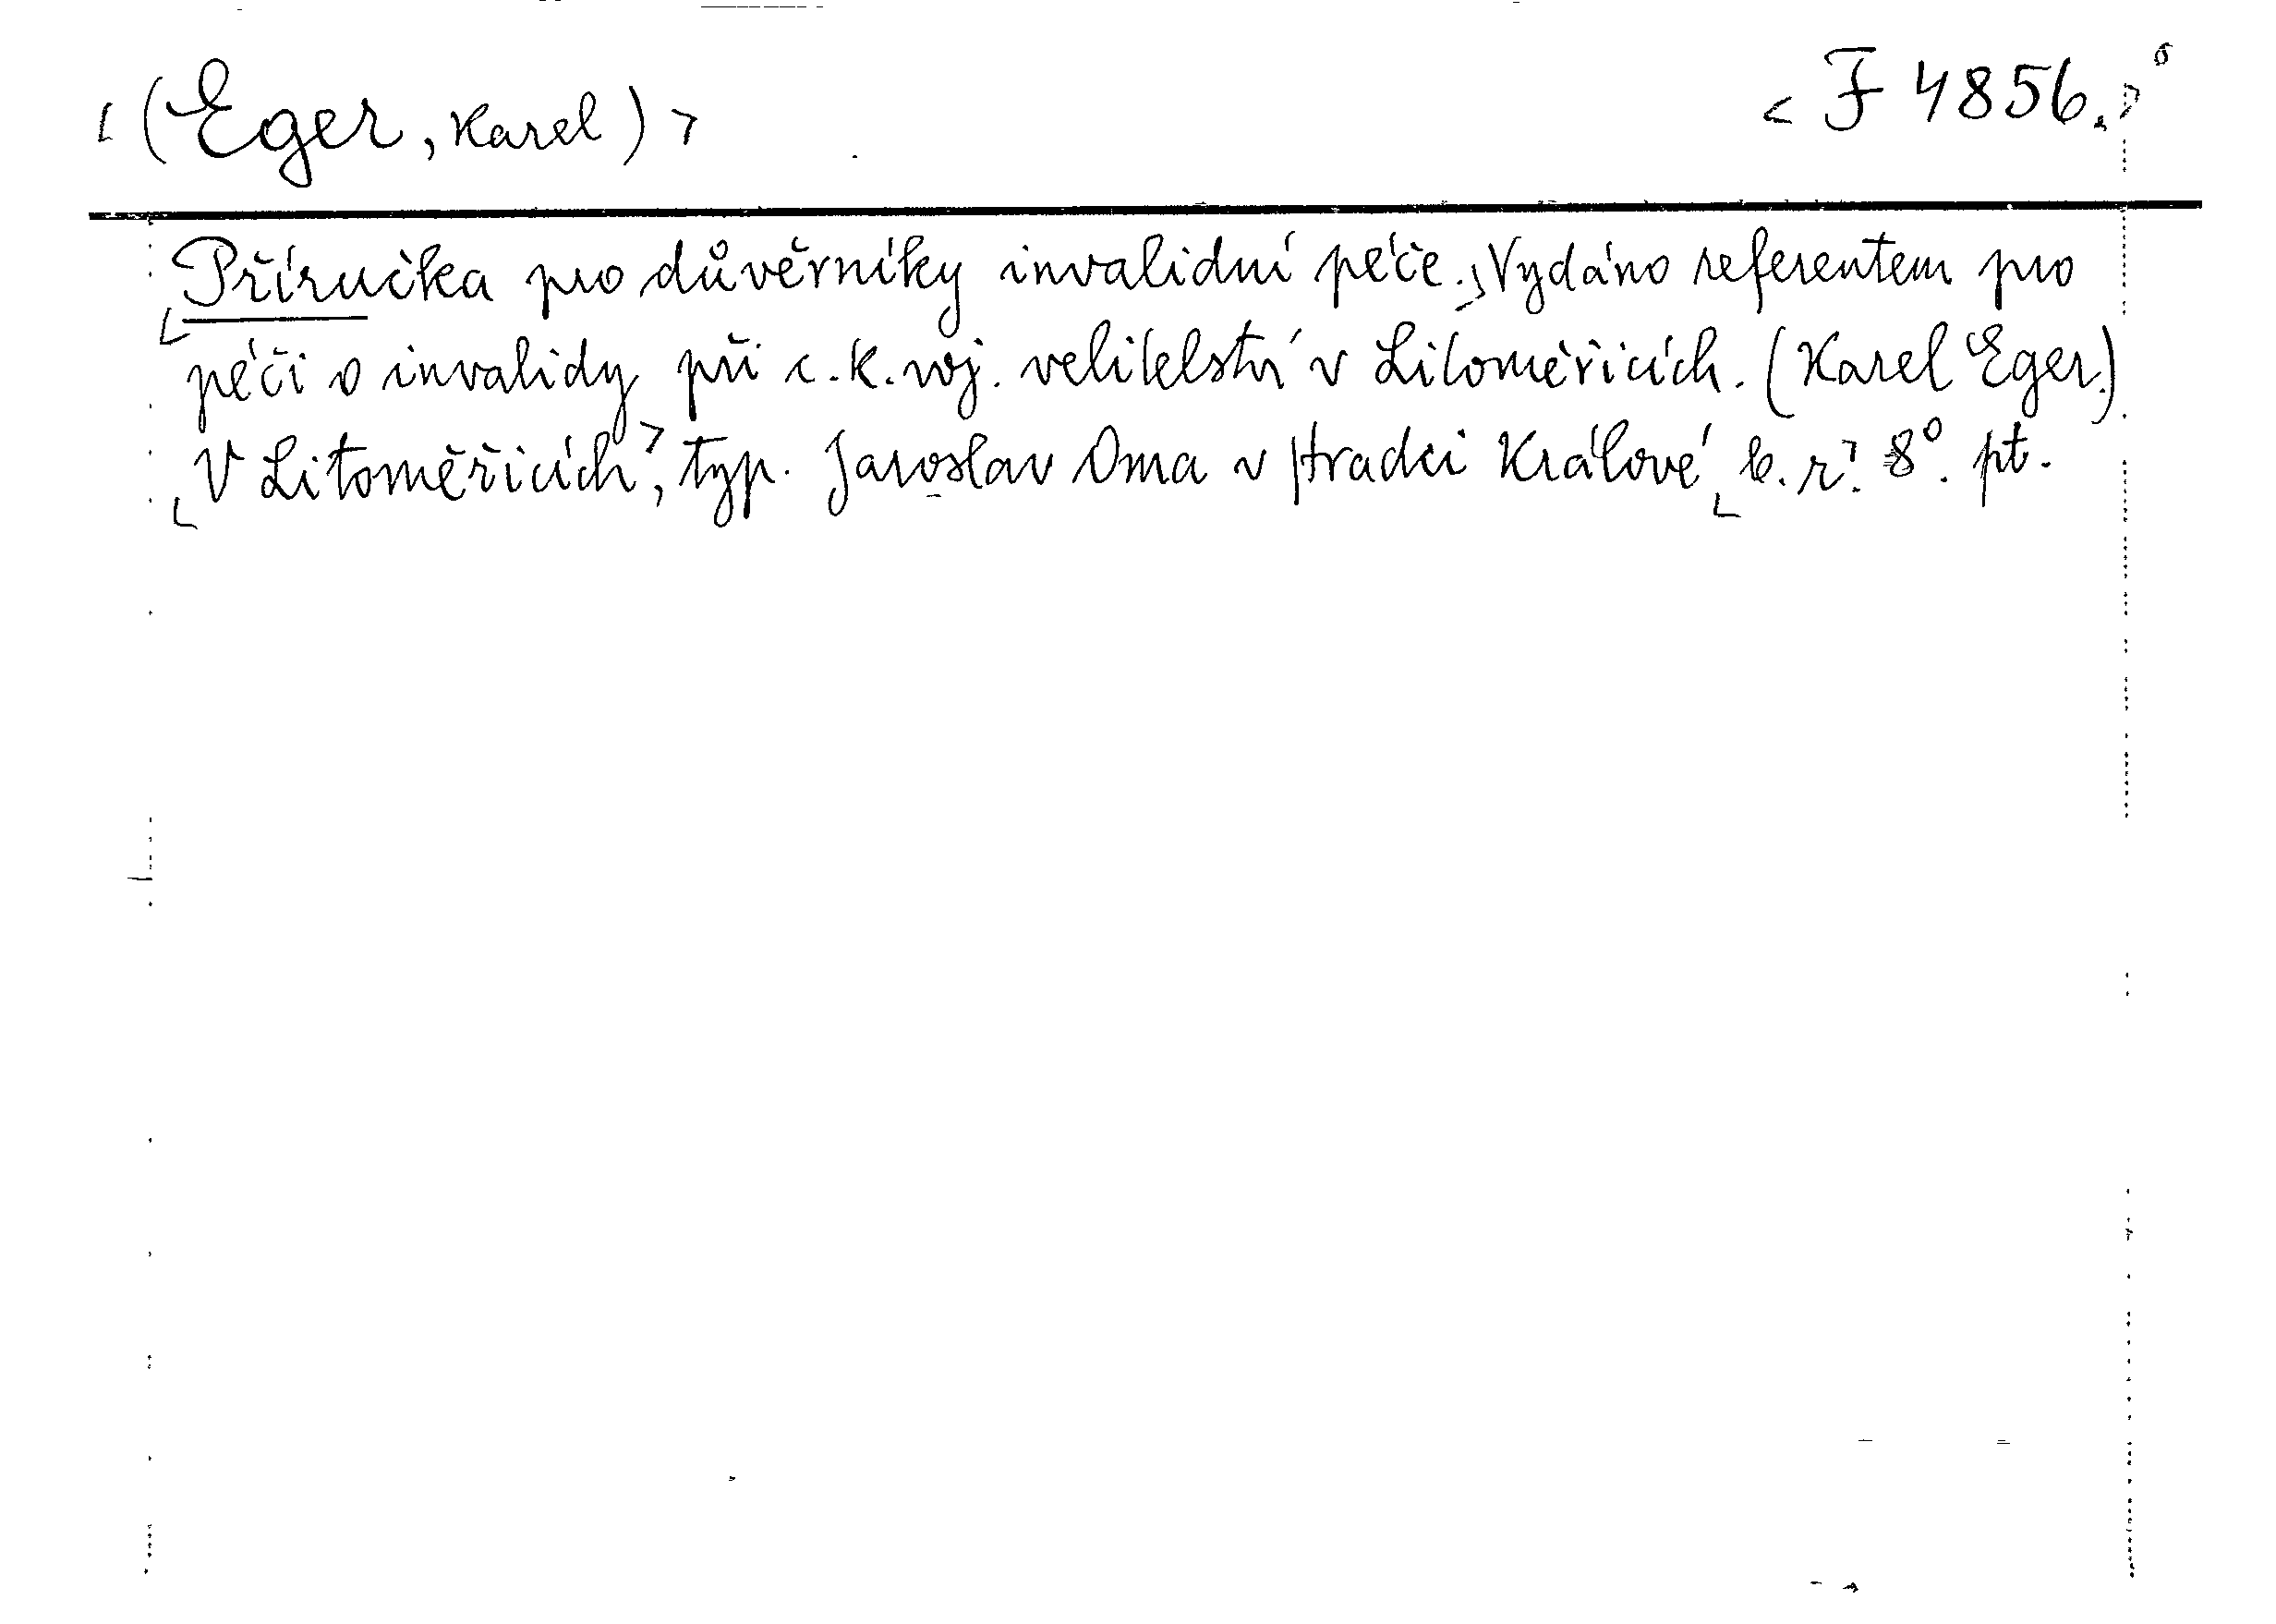 (Eger, Karel) F 4856.
Příručka pro důvěrníky invalidní péče. Vydáno referentem pro
péči o invalidy při c. k. voj. velitelství v Litoměřicích. (Karel Eger.)
V Litoměřicích, typ. Jaroslav Oma v Hradci Králové, b. r. 8°. pt.